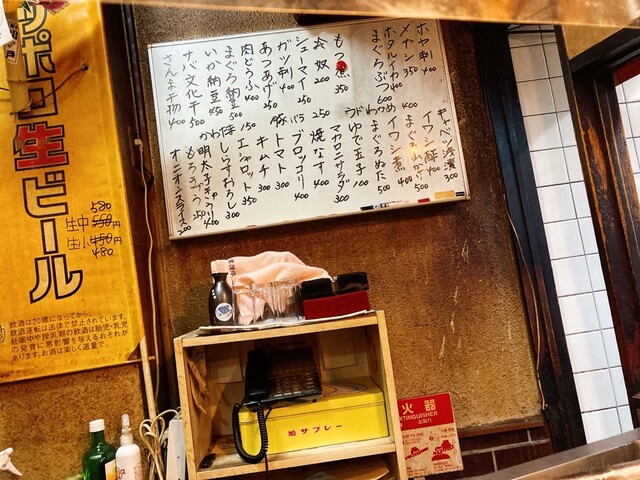 ホヤ刺 400
メナシ 350
ホタルイカ 400
まぐろぶつ 600
もつ煮 350
冷奴 200
シューマイ 250
ガツ刺 400
あつあげ 250
肉どうふ 400
まぐろ納豆 500
いか納豆 450
ナバ文化干 500
さんま干物 400
キャベツ浅漬 300
イワシ酢 400
まぐろ山かけ 500
イワシ煮 400
まぐろぬた 500
ゆで玉子 100
マカロニサラダ 300
焼なす 400
ブロッコリ 400
トマト 300
キムチ 300
エシャロット 350
しらすおろし 300
明太子きゅうり 400
もろきゅう 250
オニオンスライス 200
サッポロ生ビール
生中 550円 580
生小 450円 480
飲酒は20歳になってから。
飲酒運転は法律で禁止されています。
妊娠中や授乳期の飲酒は胎児・乳児
の発育に悪影響を与えるおそれが
あります。お酒は楽しく適量で。
鳩サブレー
火器
EXTINGUISHER